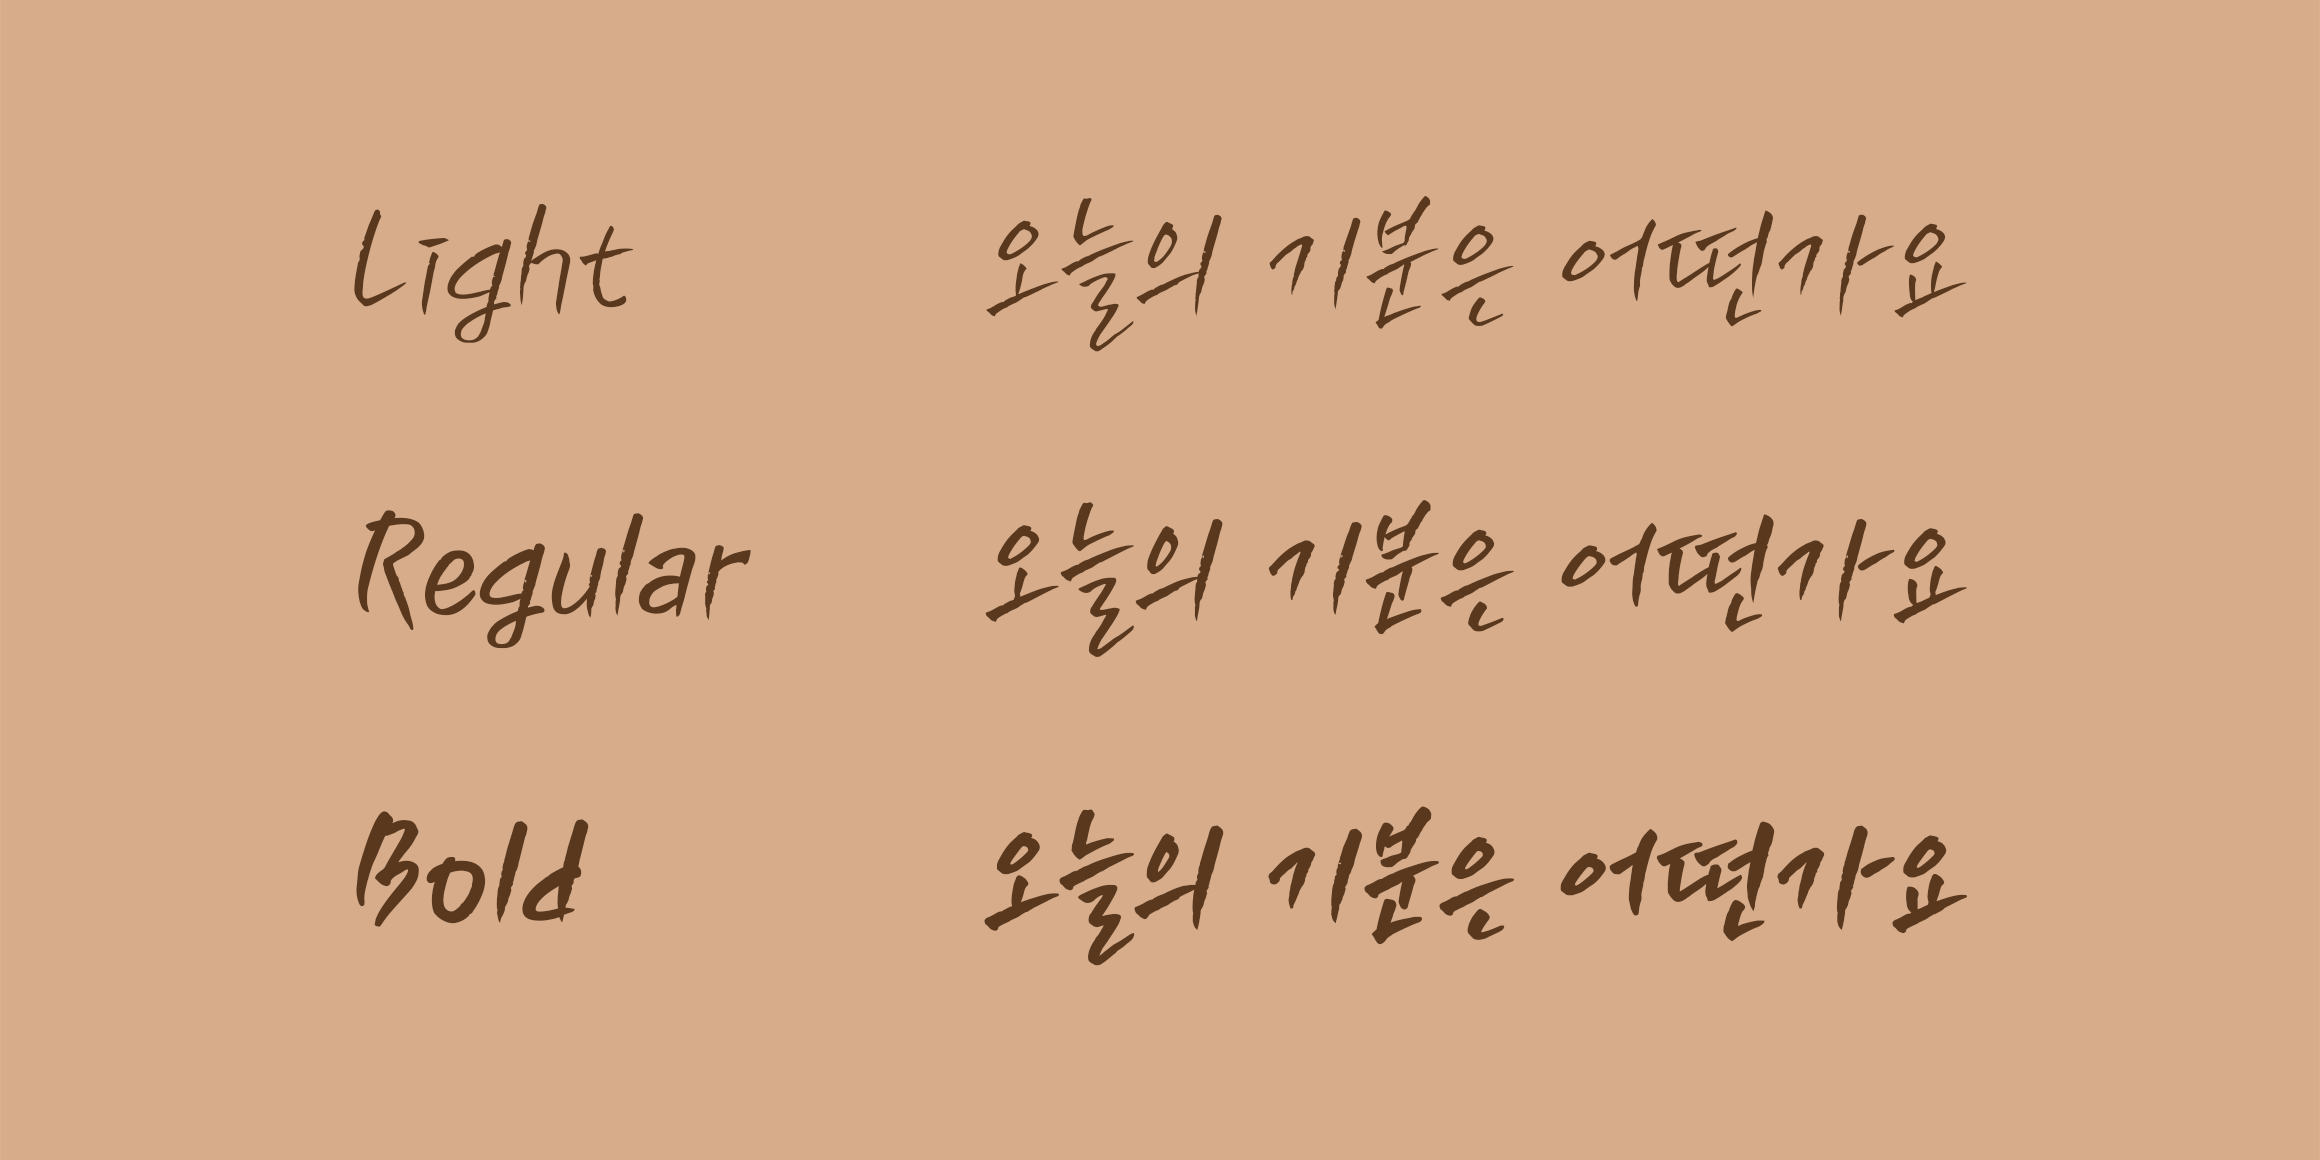 Light 오늘의 기분은 어떤가요
Regular 오늘의 기분은 어떤가요
Bold 오늘의 기분은 어떤가요